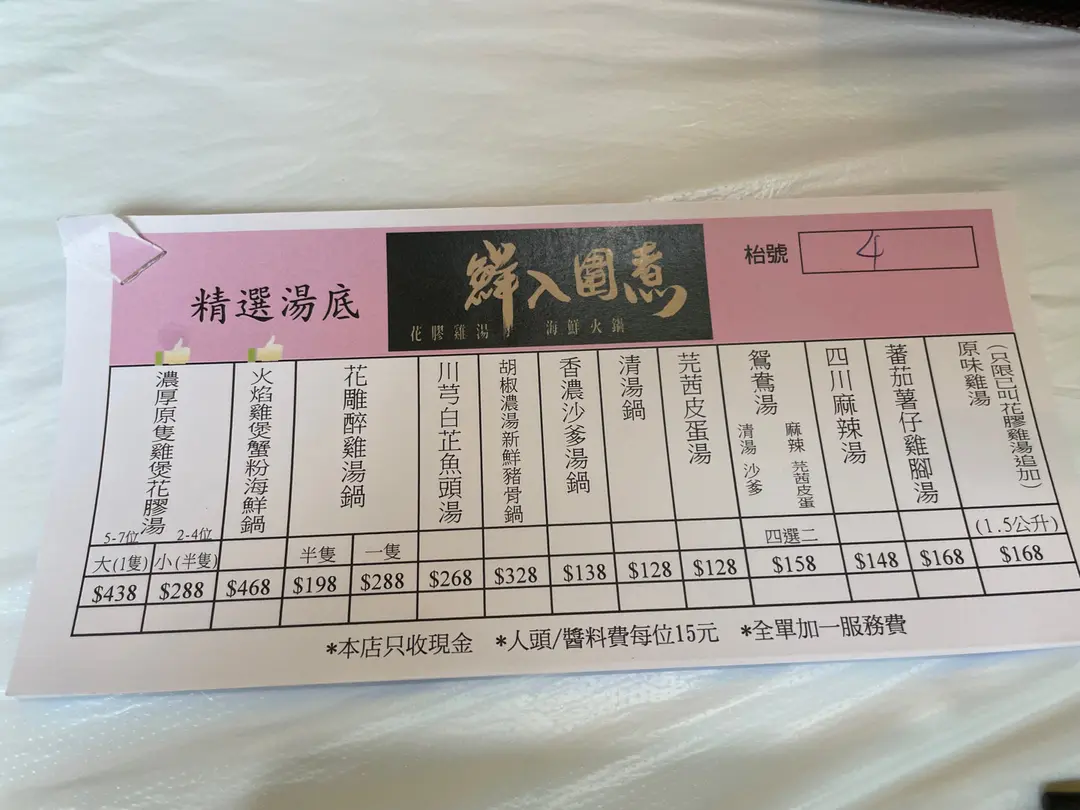 精選湯底
鮮入圍煮
花膠雞湯 海鮮火鍋
枱號 4
濃厚原隻雞煲花膠湯
5-7位 2-4位
大(1隻) 小(半隻)
$438 $288
火焰雞煲蟹粉海鮮鍋
$468
花雕醉雞湯鍋
半隻 一隻
$198 $288
川芎白芷魚頭湯
$268
胡椒濃湯新鮮豬骨鍋
$328
香濃沙爹湯鍋
$138
清湯鍋
$128
芫茜皮蛋湯
$128
鴛鴦湯
麻辣 芫茜皮蛋
清湯 沙爹
四選二
$158
四川麻辣湯
$148
蕃茄薯仔雞腳湯
$168
(只限已叫花膠雞湯追加)
原味雞湯
(1.5公升)
$168
*本店只收現金 *人頭/醬料費每位15元 *全單加一服務費